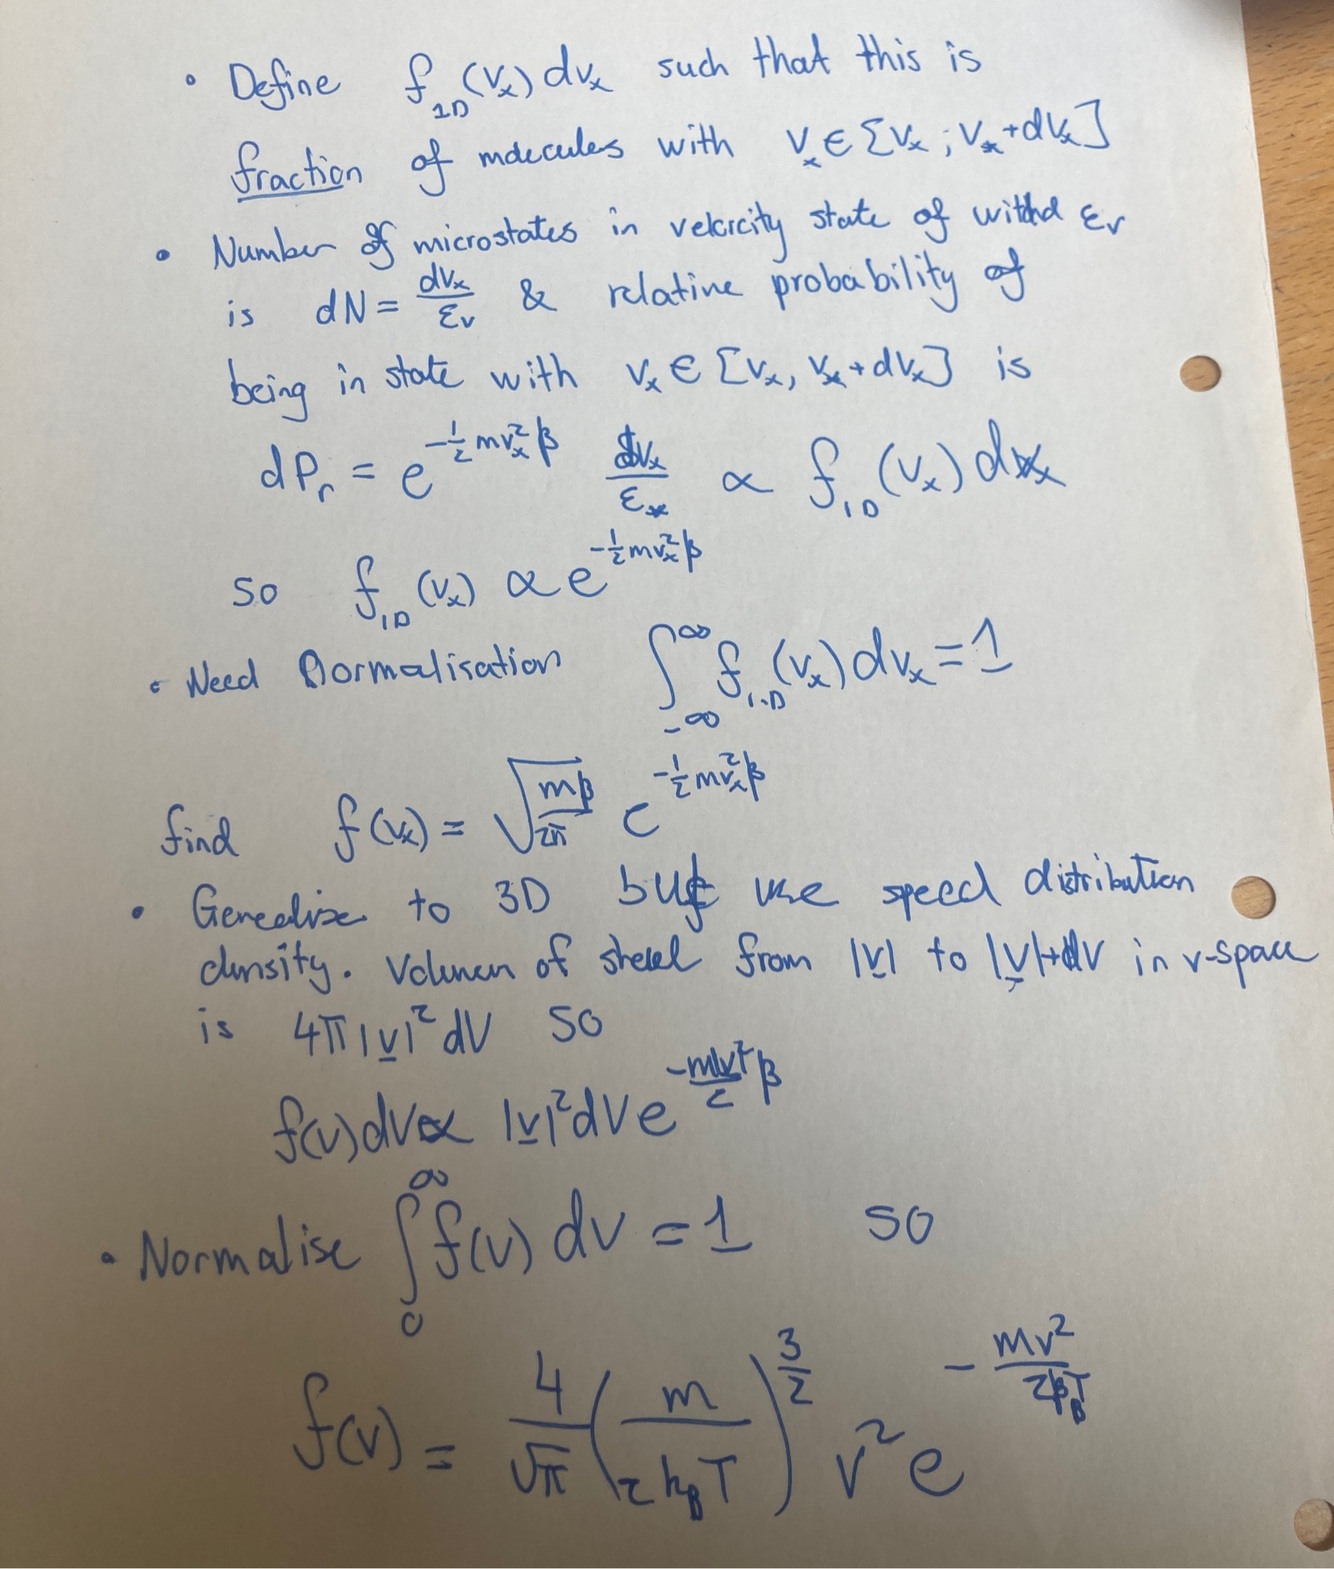 • Define f₁D(vₓ)dvₓ such that this is
fraction of molecules with vₓ ∈ [vₓ ; vₓ+dvₓ]
• Number of microstates in velocity state of width εv
is dN = dvₓ/εv & relative probability of
being in state with vₓ ∈ [vₓ, vₓ+dvₓ] is
dPr = e^(-½mvₓ²β) dvₓ/εₓ ∝ f₁D(vₓ)dvₓ
so f₁D(vₓ) ∝ e^(-½mvₓ²β)
• Need Normalisation ∫_{-∞}^{∞} f₁D(vₓ)dvₓ = 1
find f(vₓ) = √(mβ/2π) e^(-½mvₓ²β)
• Generalise to 3D but use speed distribution
density. Volumen of shell from |v| to |v|+dv in v-space
is 4π|v|²dV so
f(v)dv ∝ |v|²dV e^(-m|v|²/2 β)
• Normalise ∫_0^∞ f(v) dv = 1 so
f(v) = 4/√π (m/2k_BT)^(3/2) v² e^(-mv²/2k_BT)